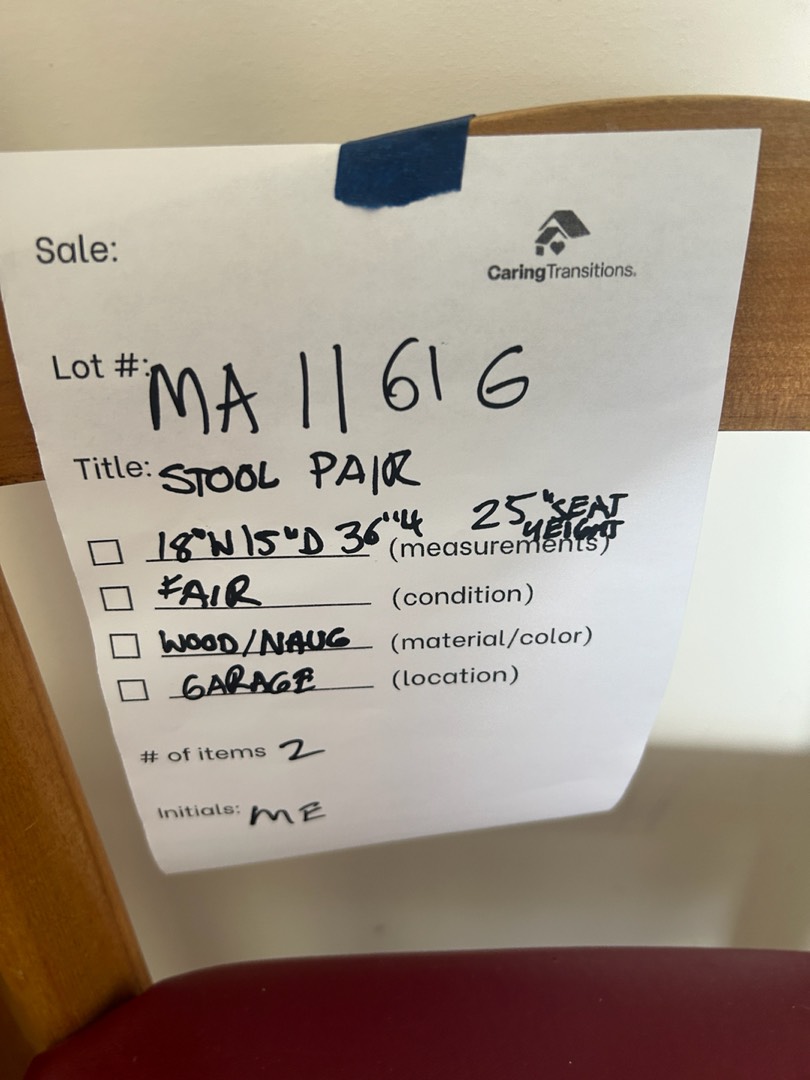 Sale:
CaringTransitions.
Lot #: MA 11 61 G
Title: STOOL PAIR
25" SEAT
HEIGHT
☐ 18"W 15"D 36"H (measurements)
☐ FAIR (condition)
☐ WOOD/NAUG (material/color)
☐ GARAGE (location)
# of items 2
Initials: ME